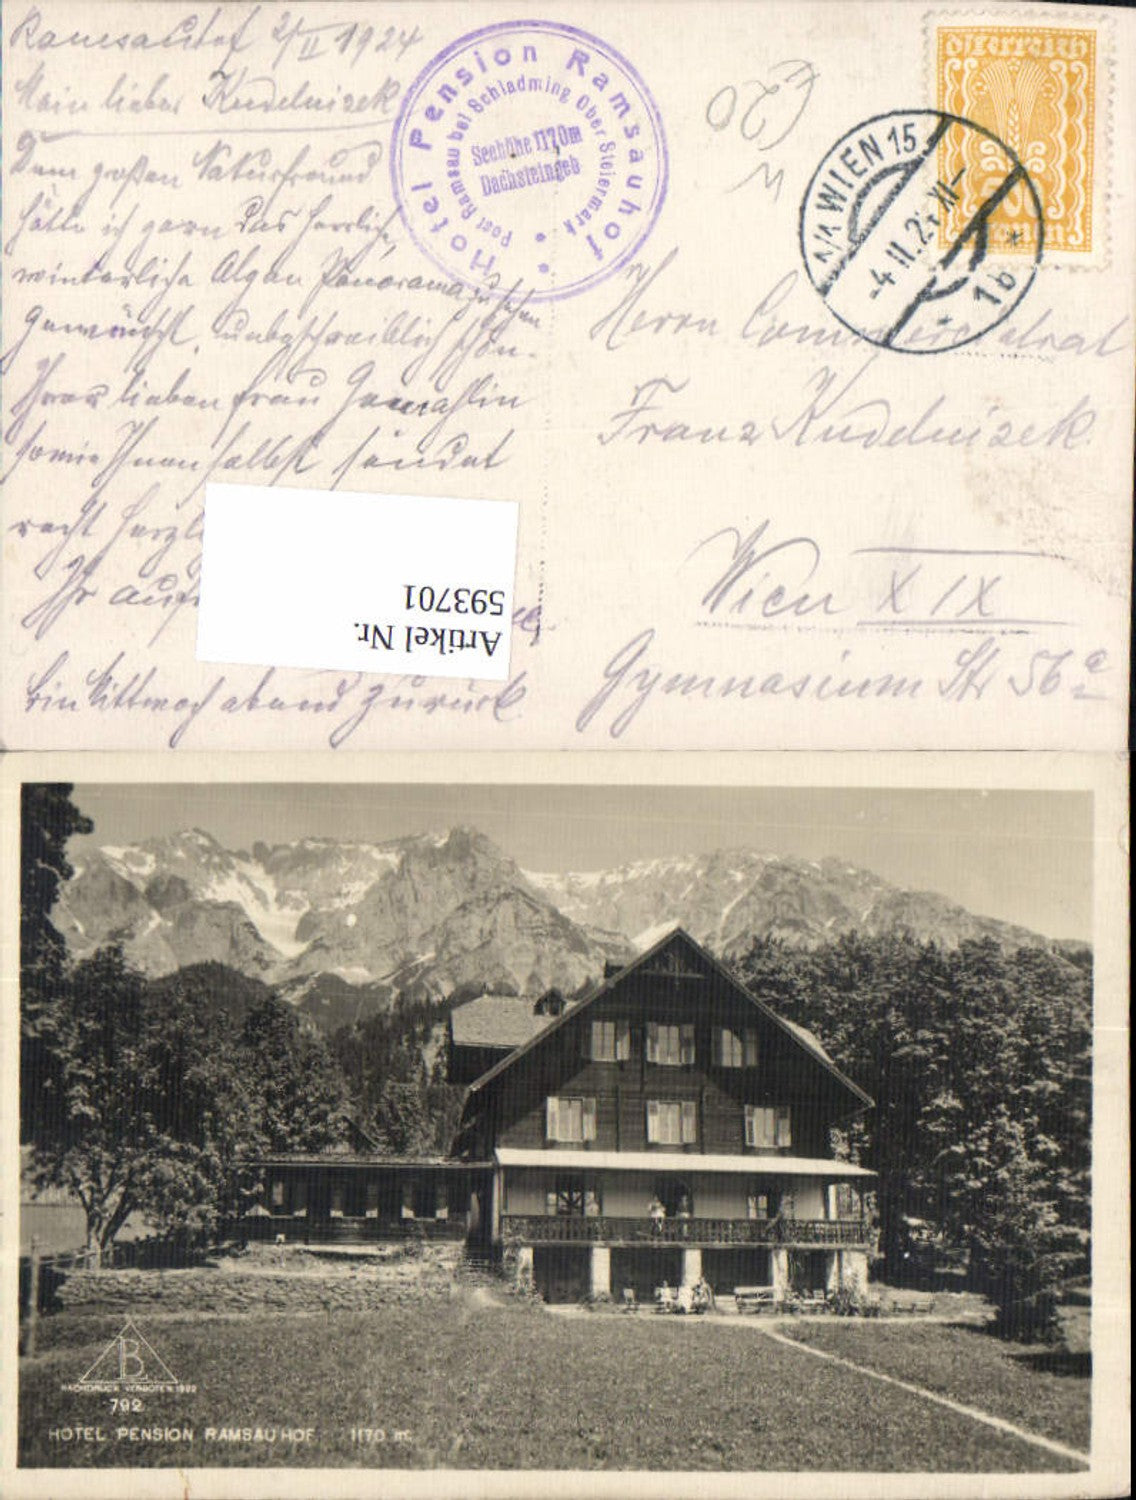 Ramsauhof 2/II 1924
Mein lieber Kudelnizek
Dem großen Naturfreund
hätte ich gern das herrliche,
winterliche Alpen Panorama zu sehen
gewünscht, unbeschreiblich schön.
Ihrer lieben Frau Gemahlin
sowie Ihnen selbst sendet
recht herzl
Ihr auf
bin Mittwoch abend zurück
Hotel Pension Ramsauhof
Post Ramsau bei Schladming Ober Steiermark
Seehöhe 1170m
Dachsteingeb
€20
Österreich
Kronen
1/1 WIEN 15
-4 II. 24 XI-
* 1b *
Herrn Commerzialrat
Franz Kudelnizek
Wien XIX
Gymnasium Str 56a
Artikel Nr.
593701
BL
NACHDRUCK VERBOTEN 1922
792
HOTEL PENSION RAMSAUHOF 1170 m.